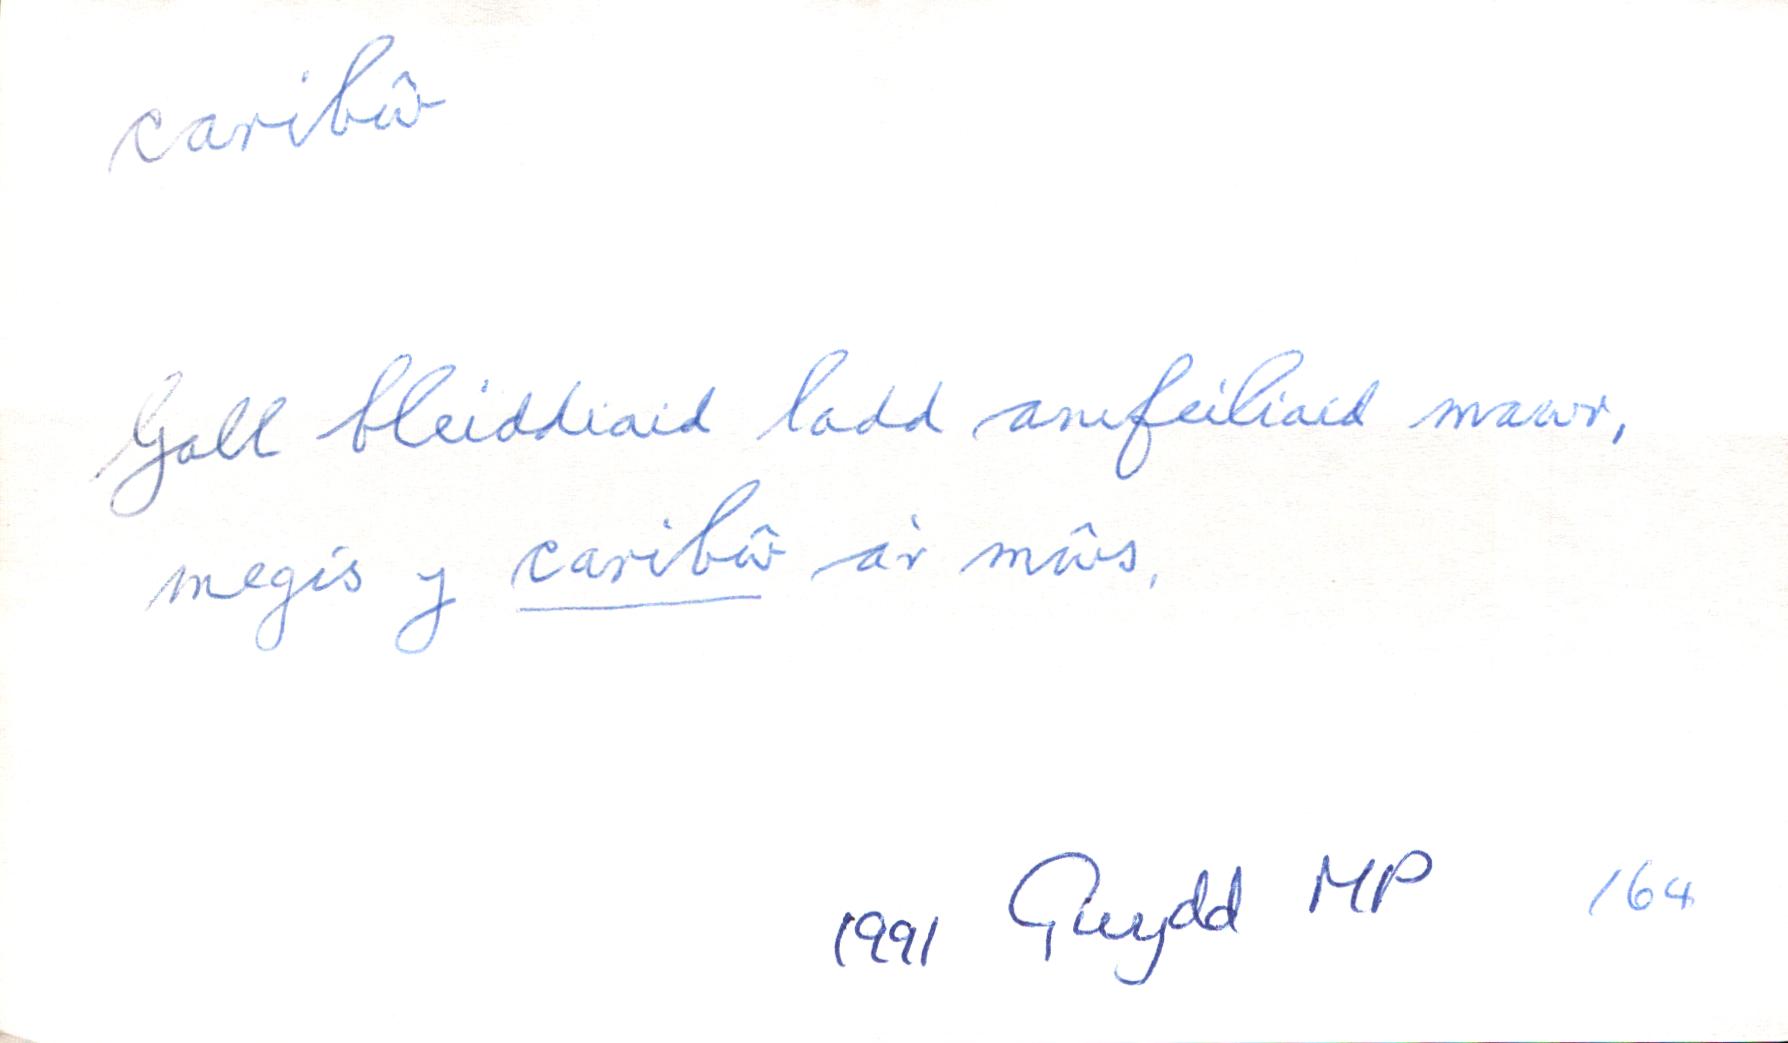 caribŵ
Gall bleiddiaid ladd anifeiliaid mawr,
megis y caribŵ a'r mŵs.
1991 Gwydd MP 164